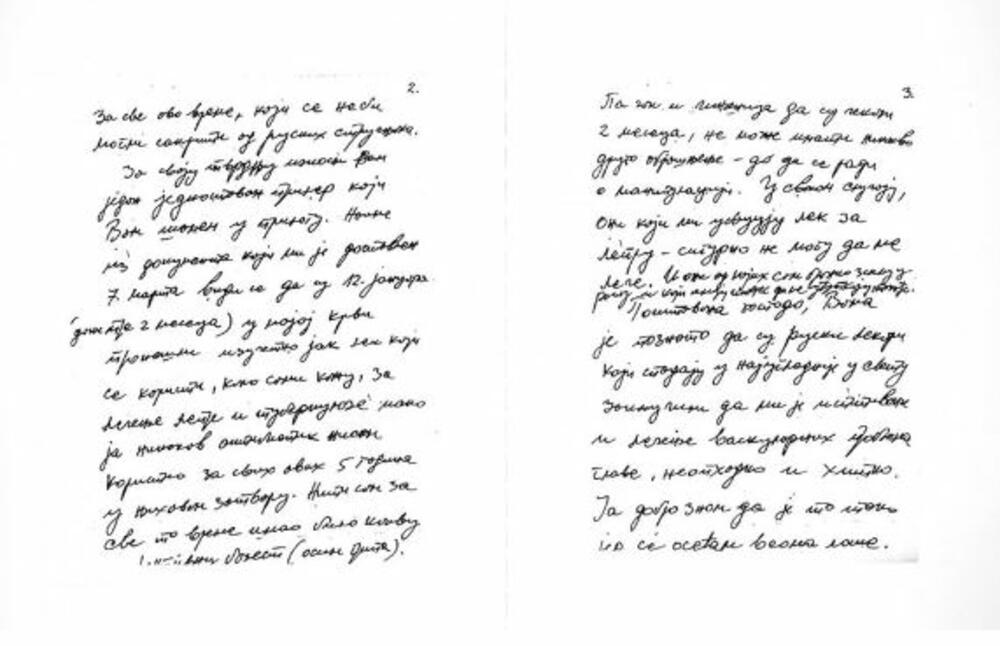 2.
За све ово време, који се не би
могли сакрити од руских стручњака.
За своју тврдњу износим вам
један једноставан пример који
Вам шаљем у прилогу. Наиме
из документа који ми је достављен
7. марта види се да су 12. јануара
(дакле пре 2 месеца) у мојој крви
пронашли изузетно јак лек који
се користи, како сами кажу, за
лечење лепре и туберкулозе мако
ја никаков антибиотик нисам
користио за свих ових 5 година
у њиховом затвору. Нити сам за
све то време имао било какву
болест (осим грипа).
3.
Па ток и чињеница да су чекали
2 месеца, не може имати никакво
друго објашњење – до да се ради
о манипулацији. У сваком случају,
они који ми увацују лек за
лепру – сигурно не могу да ме
лече. И они од којих сам бранио земљу у
рату и који имају интерес да ме
Поштована господо, Вама
је познато да су руски лекари
који спадају у најугледније у свету
закључили да ми је испитивање
и лечење васкуларних проблема
главе, неопходно и хитно.
Ја добро знам да је то тако
јер се осећам веома лоше.